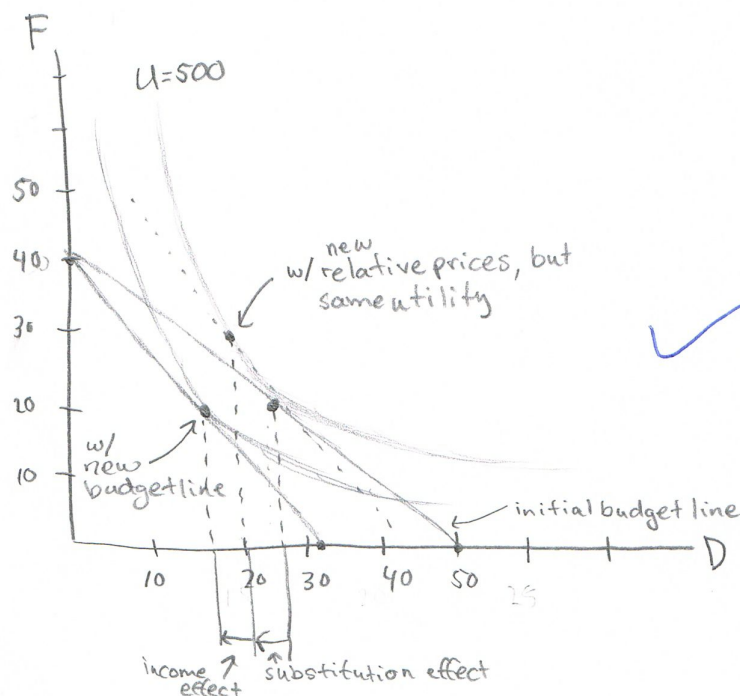 F
U=500
50
40
30
20
10
new
w/ relative prices, but
same utility
w/
new
budgetline
initial budget line
D
10
20
30
40
50
25
income
effect
substitution effect